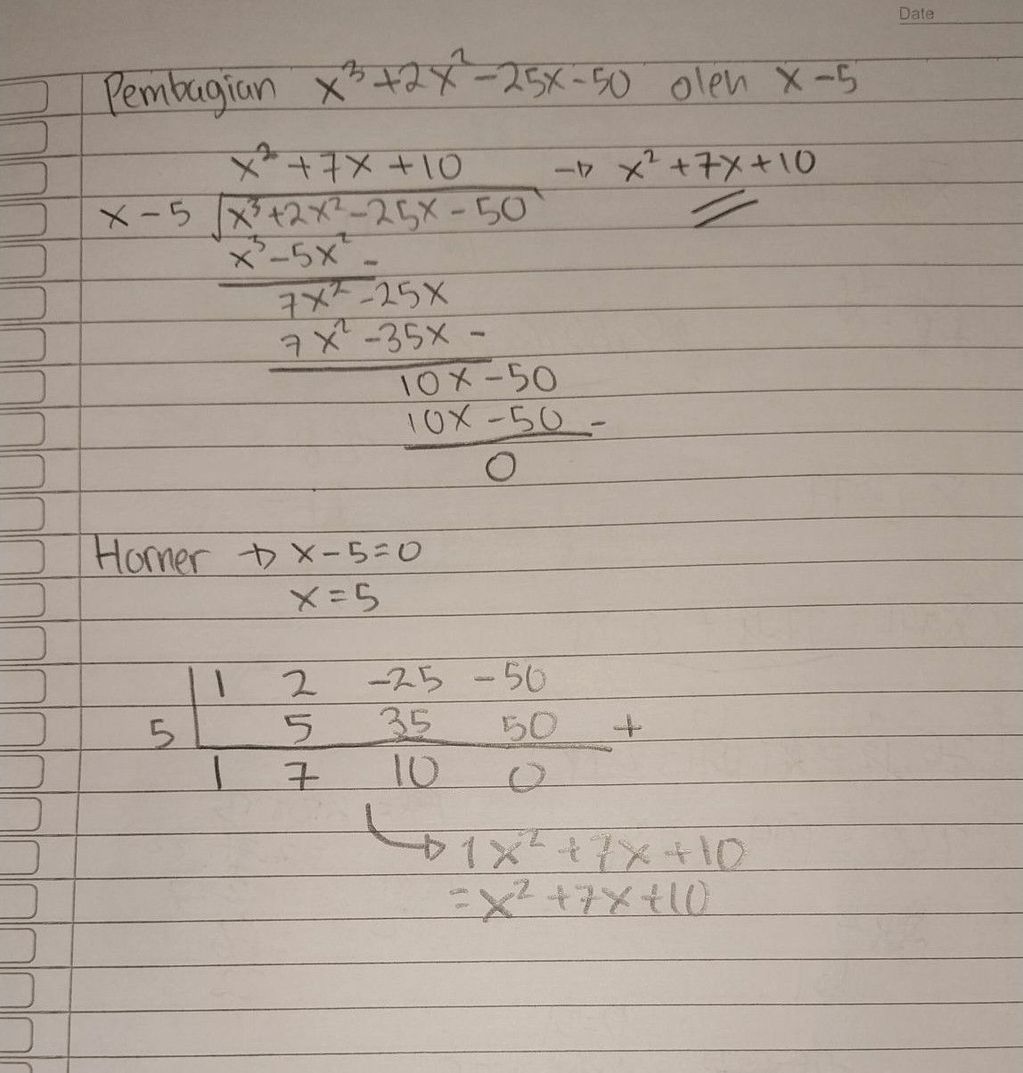 Date
Pembagian x³+2x²-25x-50 oleh x-5
x²+7x+10 → x²+7x+10
x-5 √x³+2x²-25x-50
x³-5x² -
7x²-25x
7x²-35x -
10x-50
10x-50 -
0
Horner → x-5=0
x=5
1 2 -25 -50
5 5 35 50 +
1 7 10 0
→ 1x²+7x+10
=x²+7x+10